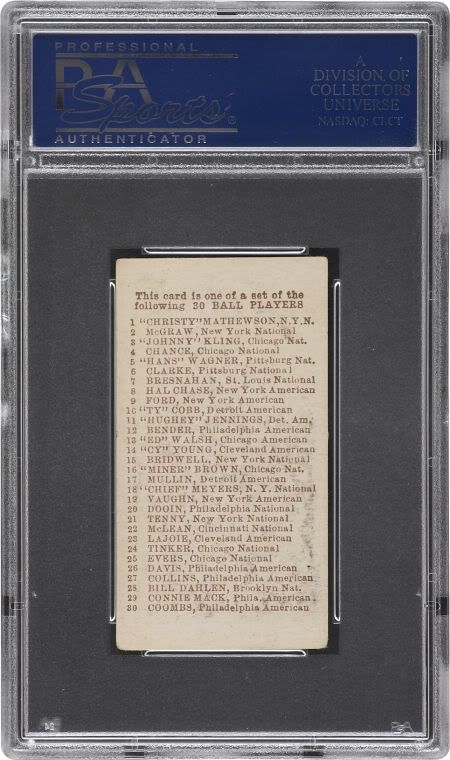 PROFESSIONAL
PSA
Sports®
AUTHENTICATOR
A
DIVISION OF
COLLECTORS
UNIVERSE
NASDAQ: CLCT
This card is one of a set of the
following 30 BALL PLAYERS
1 "CHRISTY" MATHEWSON, N.Y.N.
2 McGRAW, New York National
3 "JOHNNY" KLING, Chicago Nat.
4 CHANCE, Chicago National
5 "HANS" WAGNER, Pittsburg Nat.
6 CLARKE, Pittsburg National
7 BRESNAHAN, St. Louis National
8 HAL CHASE, New York American
9 FORD, New York American
10 "TY" COBB, Detroit American
11 "HUGHEY" JENNINGS, Det. Am.
12 BENDER, Philadelphia American
13 "ED" WALSH, Chicago American
14 "CY" YOUNG, Cleveland American
15 BRIDWELL, New York National
16 "MINER" BROWN, Chicago Nat.
17 MULLIN, Detroit American
18 "CHIEF" MEYERS, N. Y. National
19 VAUGHN, New York American
20 DOOIN, Philadelphia National
21 TENNY, New York National
22 McLEAN, Cincinnati National
23 LAJOIE, Cleveland American
24 TINKER, Chicago National
25 EVERS, Chicago National
26 DAVIS, Philadelphia American
27 COLLINS, Philadelphia American
28 BILL DAHLEN, Brooklyn Nat.
29 CONNIE MACK, Phila. American
30 COOMBS, Philadelphia American
PSA